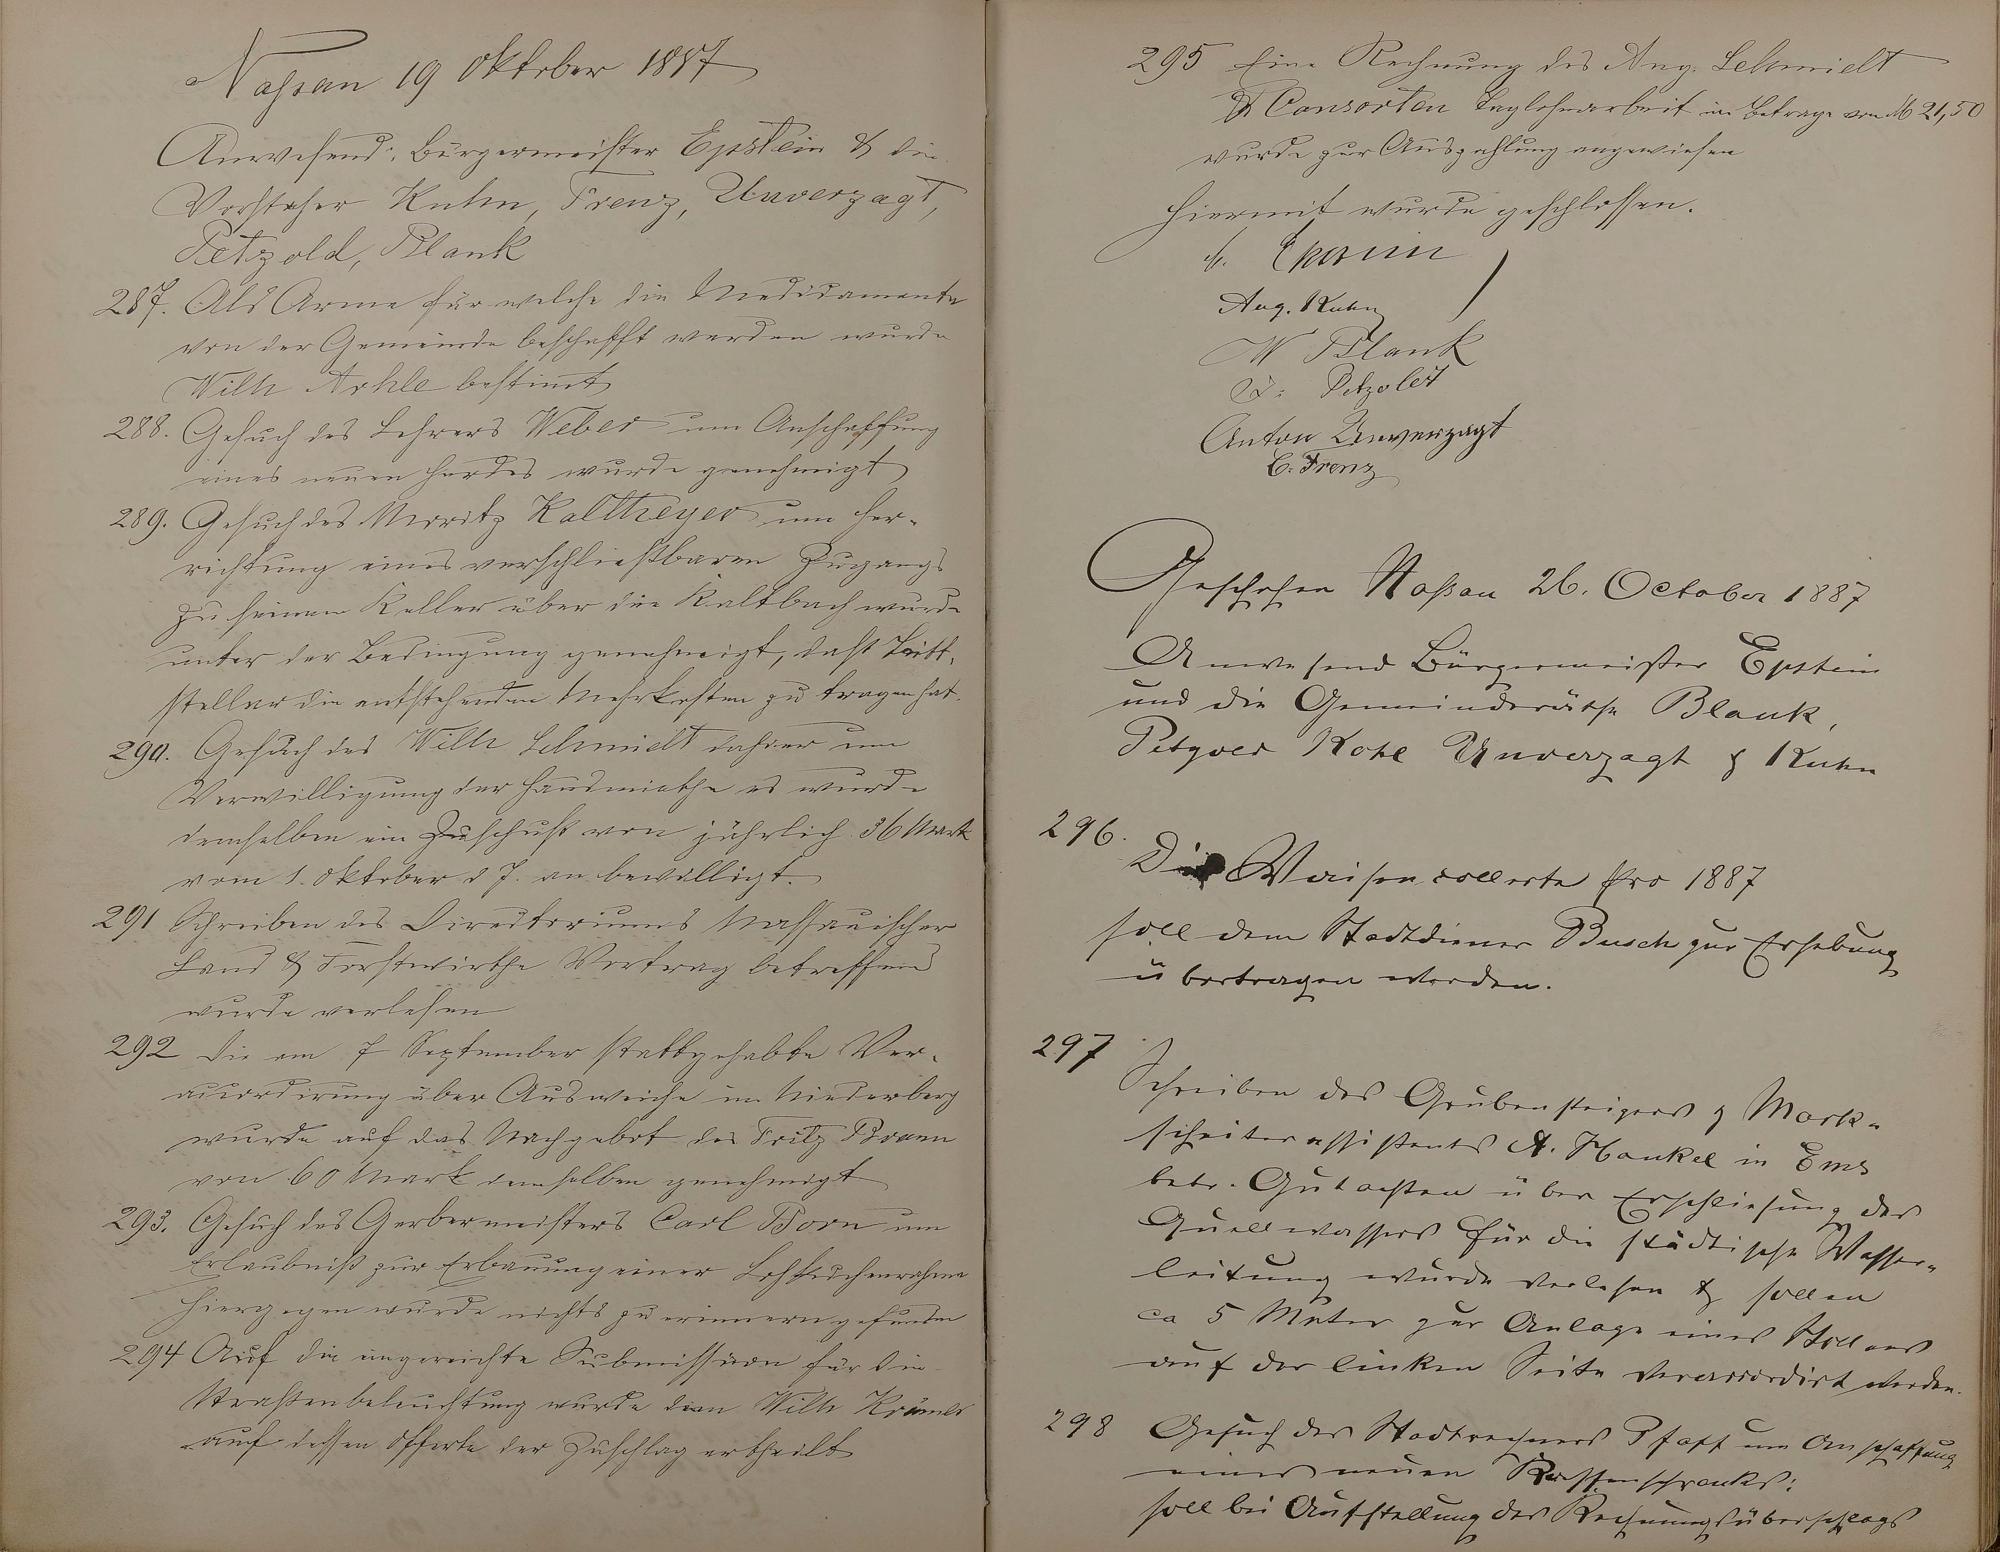 Naßau 19 Oktober 1887
Anwesend: Bürgermeister Epstein & die
Vorsteher Kuhn, Trenz, Unverzagt,
Petzold, Blank
287. Als Arme für welche die Medicamente
von der Gemeinde beschafft werden wurde
Wilh bestimmt
288. Gesuch des Lehrers Weber um Anschaffung
eines neuen Herdes wurde genehmigt
289. Gesuch des Moritz Kaltheyer um Her-
richtung eines verschließbaren Zugangs
zu seinem Keller über die Kaltbach wurde
unter der Bedingung genehmigt, daß Bitt-
steller die entstehenden Mehrkosten zu tragen hat.
290. Gesuch des Wilh Schmidt dahier um
Verwilligung der Hausmiethe es wurde
demselben ein Zuschuß von jährlich 36 Mark
vom 1. Oktober d J. an bewilligt.
291 Schreiben des Directoriums Nassauischer
Land & Forstwirthe Vortrag betreffend
wurde verlesen
292 Die am 7 September stattgehabte Ver-
accordirung über Ausweiche im Niederberg
wurde auf das Nachgebot des Fritz
von 60 Mark demselben genehmigt
293. Gesuch des Gerbermeisters Carl Born um
Erlaubniß zur Erbauung einer Lohkuchenrahme
hiergegen wurde nichts zu erinnern gefunden
294 Auf die eingereichte Submission für die
Straßenbeleuchtung wurde dem Wilh Krämer
auf dessen Offerte der Zuschlag ertheilt
295 Eine Rechnung des Aug. Schmidt
& Consorten Taglohnarbeit im Betrage von M 21,50
wurde zur Auszahlung angewiesen
Hiermit wurde geschlossen.
Epstein
Aug. Kuhn
W Blank
Petzold
Anton Unverzagt
C. Trenz
Geschehen Naßau 26. October 1887
Anwesend Bürgermeister Epstein
und die Gemeinderäthe Blank,
Petzold Unverzagt & Kuhn
296. Die Waisencollecte pro 1887
soll dem Stadtdiener Busch zur Erhebung
übertragen werden.
297 Schreiben des Grubensteigers & Mark-
scheiterassistents A. Hankel in Ems
betr. Gutachten über Erschliesung des
Quellwassers für die städtische Wasser-
leitung wurde verlesen & sollen
ca 5 Meter zur Anlage eines Stollens
auf der linken Seite veraccordirt werden.
298 Gesuch des Stadtrechners Pfaff um Anschaffung
eines neuen Kassenschranks:
soll bei Aufstellung des Rechnungsüberschlags